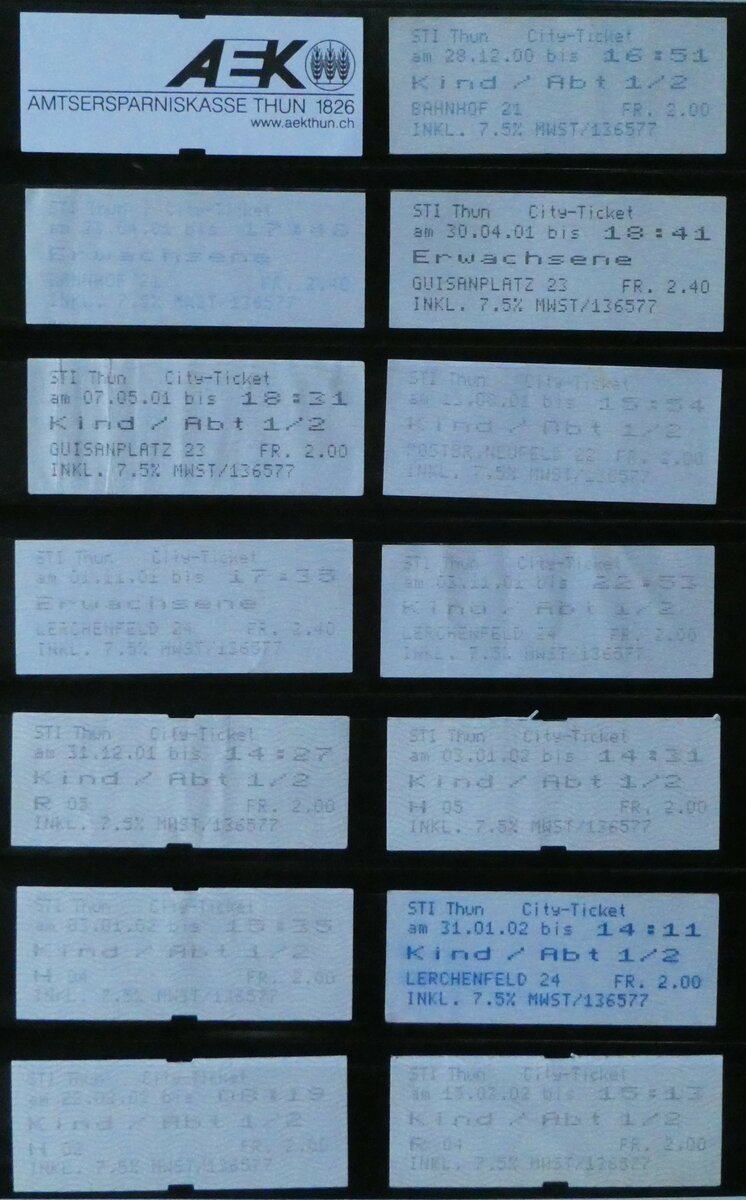 AEK
AMTSERSPARNISKASSE THUN 1826
www.aekthun.ch
STI Thun City-Ticket
am 28.12.00 bis 16:51
Kind / Abt 1/2
BAHNHOF 21 FR. 2.00
INKL. 7.5% MWST/136577
STI Thun City-Ticket
am .04.01 bis 17:46
Erwachsene
BAHNHOF 21 FR. 2.40
INKL. 7.5% MWST/136577
STI Thun City-Ticket
am 30.04.01 bis 18:41
Erwachsene
GUISANPLATZ 23 FR. 2.40
INKL. 7.5% MWST/136577
STI Thun City-Ticket
am 07.05.01 bis 18:31
Kind / Abt 1/2
GUISANPLATZ 23 FR. 2.00
INKL. 7.5% MWST/136577
STI Thun City-Ticket
am bis 15:54
Kind / Abt 1/2
POSTBR.NEUFELD 22 FR. 2.00
INKL. 7.5% MWST/136577
STI Thun City-Ticket
am 01.11.01 bis 17:35
Erwachsene
LERCHENFELD 24 FR. 2.40
INKL. 7.5% MWST/136577
STI Thun City-Ticket
am 03.11.01 bis 22:53
Kind / Abt 1/2
LERCHENFELD 24 FR. 2.00
INKL. 7.5% MWST/136577
STI Thun City-Ticket
am 31.12.01 bis 14:27
Kind / Abt 1/2
R 03 FR. 2.00
INKL. 7.5% MWST/136577
STI Thun City-Ticket
am 03.01.02 bis 14:31
Kind / Abt 1/2
H 05 FR. 2.00
INKL. 7.5% MWST/136577
STI Thun City-Ticket
am 03.01.02 bis 15:35
Kind / Abt 1/2
H 04 FR. 2.00
INKL. 7.5% MWST/136577
STI Thun City-Ticket
am 31.01.02 bis 14:11
Kind / Abt 1/2
LERCHENFELD 24 FR. 2.00
INKL. 7.5% MWST/136577
STI Thun City-Ticket
am bis 08:19
Kind / Abt 1/2
H 02 FR. 2.00
INKL. 7.5% MWST/136577
STI Thun City-Ticket
am bis 15:13
Kind / Abt 1/2
R 04 FR. 2.00
INKL. 7.5% MWST/136577